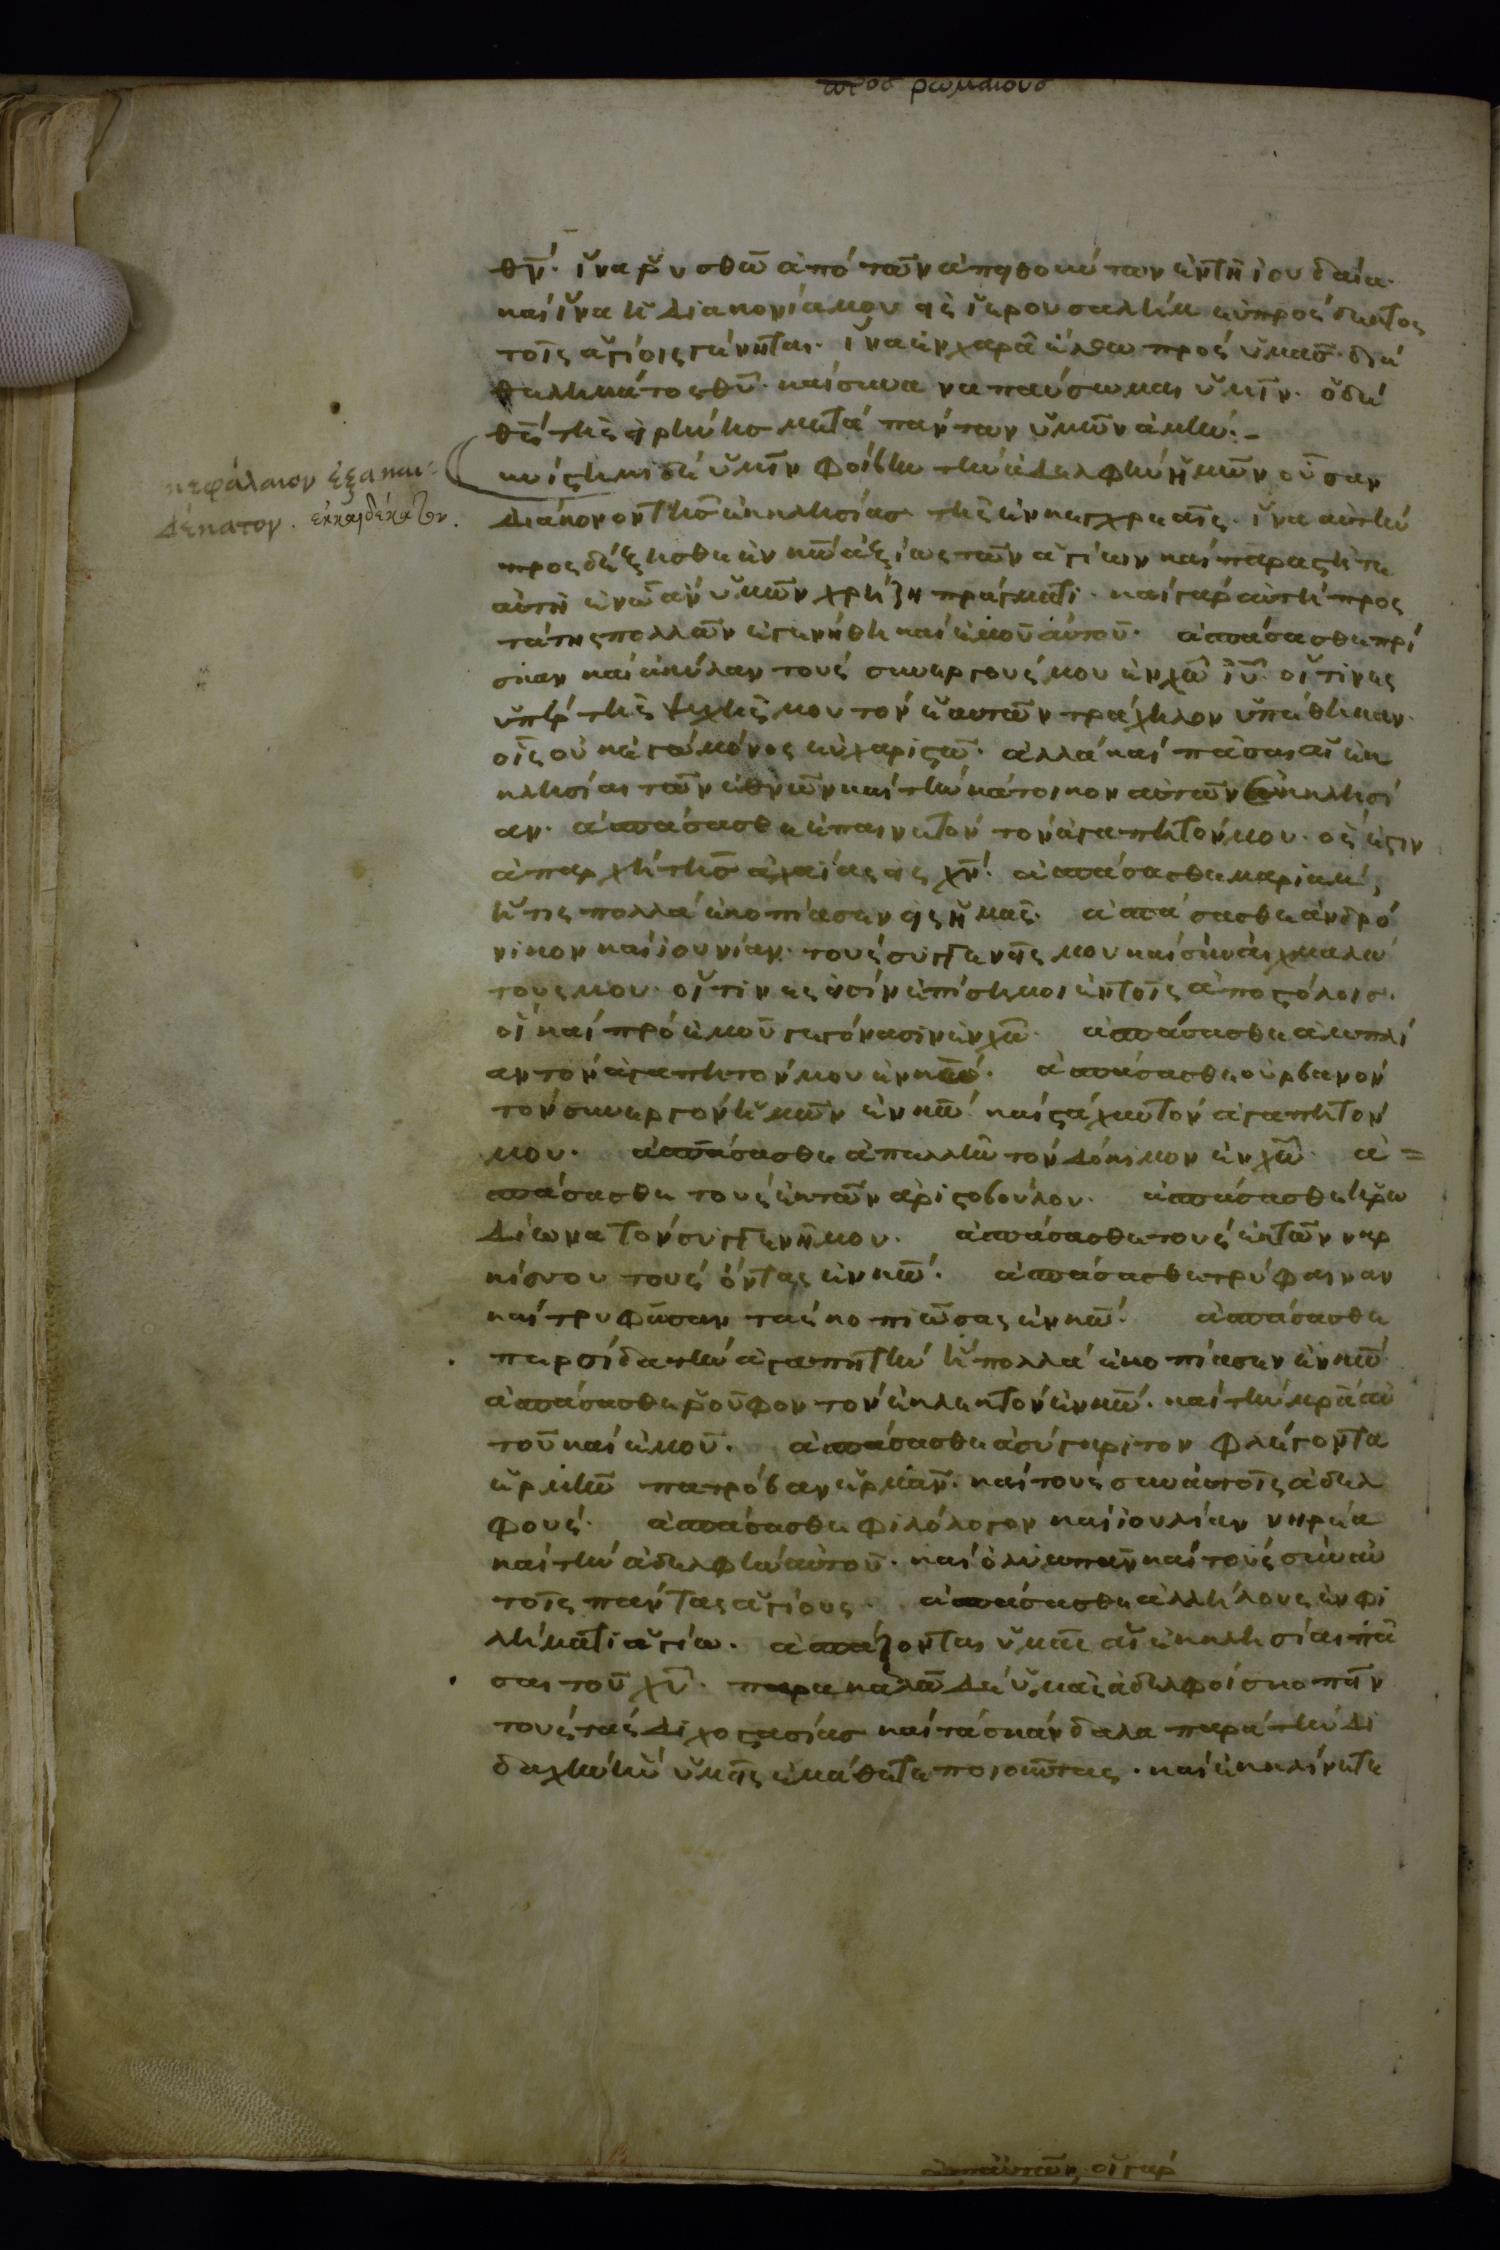 προσ ρωμαιουσ
θν̅. ἵνα ῥυσθῶ ἀπὸ τῶν ἀπηθούντων ἐν τῆ ἰουδαία.
καὶ ἵνα ἡ διακονία μου εἰς ἱερουσαλὴμ εὐπρόσδεκτος
τοῖς ἁγίοις γένηται. ἵνα ἐν χαρᾶ ἔλθω πρὸς ὑμᾶσ. διὰ
θελήματος θυ̅. καὶ συναναπαύσωμαι ὑμῖν. ὁ δὲ
θς̅ τῆς εἰρήνησ μετὰ πάντων ὑμῶν ἀμήν.
κεφάλαιον ἑξακαι=
δέκατον. εκκαιδέκατον.
συνίστημι δὲ ὑμῖν φοίβην τὴν ἀδελφὴν ἡμῶν οὖσαν
διάκονον τῆσ ἐκκλησίασ τῆς ἐν κεγχρεαῖς. ἵνα αὐτὴν
προσδέξησθε ἐν κω̅ ἀξίως τῶν ἁγίων καὶ παραστῆτε
αὐτῆ ἐν ὧ ἂν ὑμῶν χρήζη πράγματι. καὶ γὰρ αὐτὴ προς
τάτης πολλῶν ἐγενήθη καὶ ἐμοῦ αὐτοῦ. ἀσπάσασθε πρί
σκαν καὶ ἀκύλαν τοὺς συνεργούς μου ἐν χω̅ ιυ̅. οἵτινες
ὑπὲρ τῆς ψυχῆς μου τὸν ἑαυτῶν τράχηλον ὑπέθηκαν.
οἷς οὐκ ἐγὼ μόνος εὐχαριστῶ. ἀλλὰ καὶ πᾶσαι αἱ ἐκ
κλησίαι τῶν ἐθνῶν καὶ τὴν κάτοικον αὐτῶν ἐκκλησί
αν. ἀσπάσασθε ἐπαινετὸν τὸν ἀγαπητόν μου. ὅς ἐστιν
ἀπαρχὴ τῆσ ἀχαίας εἰς χν̅. ἀσπάσασθε μαριάμ,
ἥτις πολλὰ ἐκοπίασεν εἰς ἡμᾶς. ἀσπάσασθε ἀνδρό
νικον καὶ ἰουνίαν. τοὺς συγγενεῖς μου καὶ συναιχμαλώ
τους μου. οἵτινες εἰσὶν ἐπίσημοι ἐν τοῖς ἀποστόλοισ.
οἳ καὶ πρὸ ἐμοῦ γεγόνασιν ἐν χω̅. ἀσπάσασθε ἀμπλί
αν τὸν ἀγαπητόν μου ἐν κω̅. ἀσπάσασθε οὐρβανὸν
τὸν συνεργὸν ἡμῶν ἐν κω̅ καὶ στάχυν τὸν ἀγαπητόν
μου. ἀσπάσασθε ἀπελλῆν τὸν δόκιμον ἐν χω̅. ἀ=
σπάσασθε τοὺς ἐκ τῶν ἀριστοβούλου. ἀσπάσασθε ἡρω
δίωνα τὸν συγγενῆ μου. ἀσπάσασθε τοὺς ἐκ τῶν ναρ
κίσσου τοὺς ὄντας ἐν κω̅. ἀσπάσασθε τρύφαιναν
καὶ τρυφῶσαν τὰς κοπιώσας ἐν κω̅. ἀσπάσασθε
περσίδα τὴν ἀγαπητὴν ἣ πολλὰ ἐκοπίασεν ἐν κω̅
ἀσπάσασθε ῥοῦφον τὸν ἐκλεκτὸν ἐν κω̅. καὶ τὴν μρ̅α αὐ
τοῦ καὶ ἐμοῦ. ἀσπάσασθε ἀσύγκριτον φλέγοντα
ἑρμῆν πατρόβαν ἑρμᾶν. καὶ τοὺς σὺν αὐτοῖς ἀδελ
φούς. ἀσπάσασθε φιλόλογον καὶ ἰουλίαν νηρέα
καὶ τὴν ἀδελφὴν αὐτοῦ. καὶ ὀλυμπᾶν καὶ τοὺς σὺν αὐ
τοῖς πάντας ἁγίους. ἀσπάσασθε ἀλλήλους ἐν φι
λήματι ἁγίω. ἀσπάζονται ὑμᾶς αἱ ἐκκλησίαι πᾶ
σαι τοῦ χυ̅. παρακαλῶ δὲ ὑμᾶς ἀδελφοί σκοπεῖν
τοὺς τὰς διχοστασίασ καὶ τὰ σκάνδαλα παρὰ τὴν δι
δαχὴν ἣν ὑμεῖς ἐμάθετε ποιοῦντας. καὶ ἐκκλίνατε
ἀπ' αὐτῶν, οἱ γὰρ